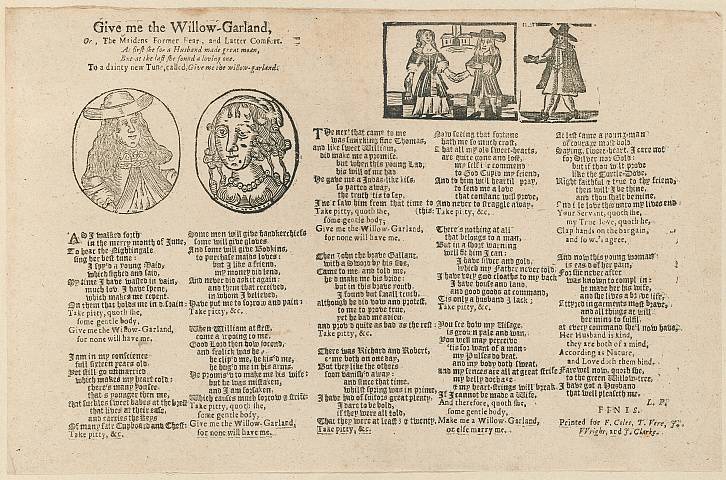 Give me the Willow-Garland,
Or, The Maidens Former Fear, and Latter Comfort.
At first she for a Husband made great moan,
But at the last she found a loving one.
To a dainty new Tune, called, Give me the willow-garland.
AS I walked forth
in the merry month of June,
To hear the Nightingale
sing her best tune:
I spy'd a young Maid,
which sighed and said,
My time I have wasted in vain,
much lov I have spent,
which makes me repent.
On them that holds me in disdain:
Take pitty, quoth she,
some gentle body,
Give me the Willow-Garland,
for none will have me.
I am in my conscience
full sixteen years old,
But still go unmarried
which makes my heart cold:
there's many
that's younger then me,
that suckles sweet babes at the brest
that lives at their ease,
and carries the keys
Of many fair Cupboard and Chest:
Take pitty, &c.
Some men will give handkerchiefs
some will give gloves
And some will give Bodkins,
to purchase maids loves:
but I like a friend,
my money did lend,
And never did ask it again
and them that received,
in whom I believed,
Have put me to sorrow and pain:
Take pitty, &c.
When William at first,
came a wooing to me,
Good Lord then how jocond,
and frolick was he:
he clip'd me, he kis'd me,
he hug'd me in his arms,
He promis'd to make me his wife:
but he was mistaken,
and I am forsaken,
Which causes much sorrow & strife:
Take pitty, quoth she,
some gentle body,
Give me the Willow-Garland,
for none will have me.
THe next that came to me
was smirking fine Thomas,
and like sweet William,
did make me a promise.
but when this young Lad,
his will of me had
He gave me a Judas-like kiss,
so parted away,
the truth its to say,
I ne'r saw him from that time to
(this:
Take pitty, quoth she,
some gentle body;
Give me the Willow-Garland,
for none will have me.
Then John the brave Gallant,
with a Sword by his side,
Came to me, and told me,
he'd make me his bride:
but in this brave youth.
I found but small truth.
although he did vow and protest,
to me to prove true,
yet he bad me adieu
and prov'd quite as bad as the rest:
Take pitty, &c.
There was Richard and Robert,
e'me both on one day,
But they like the others
soon vanish'd away:
and since that time,
whilst spring was in prime,
I have had of suitors great plenty.
I dare to be bold,
if they were all told,
That they were at least a twenty.
Take pitty, &c.
Now seeing that fortune
hath me so much crost,
That all my old sweet-hearts,
are quite gone and lost,
my self i'e commend
to God Cupid my friend,
And to him will heartily pray,
to send me a love
that constant will prove,
And never to straggle away.
Take pitty, &c.
There's nothing at all
that belongs to a man,
But in a loyal Learning
well fit him I can:
I have silver and gold,
which my Father never told,
I have very good cloaths to my back
I have house and land,
and good goods at command,
Tis only a husband I lack;
Take pitty, &c.
You see how my Visage
is grown pale and wan,
You well may perceive
'tis for want of a man:
my Pulses do beat.
and my body doth sweat,
and my sences are all at great strife
my belly doth ake
& my heart-strings will break
If I cannot be made a Wife.
And therefore, quoth she,
some gentle body,
Make me a Willow-Garland,
or else marry me.
At last came a young-man
of courage most bold.
Saying, sweet-heart, I care not
for Silver nor Gold:
but if thou wilt prove
like the Turtle-Dove.
Right faithful & true to thy friend,
then will I be thine,
and thou shalt be mine,
And i'le love thee unto my lives end
Your Servant, quoth she,
my True love, quoth he,
Clap hands on the bargain,
and so w'are agree.
And now this young woman
is eas'd of her pain,
For she never after
was known to complain:
he made her his bride,
and she lives a brave life,
Attyred in garments most brave,
and all things at will
her mind to fulfil
at every command she'l now have,
Her Husband is kind,
they are both of a mind,
According to Nature,
and Love doth them bind.
Farewel now, quoth she,
to the green Willow-tree,
I have got a Husband
that well pleaseth me.
L. P.
FINIS.
Printed for F. Coles, T. Vere, J.
Wright, and J. Clarke.